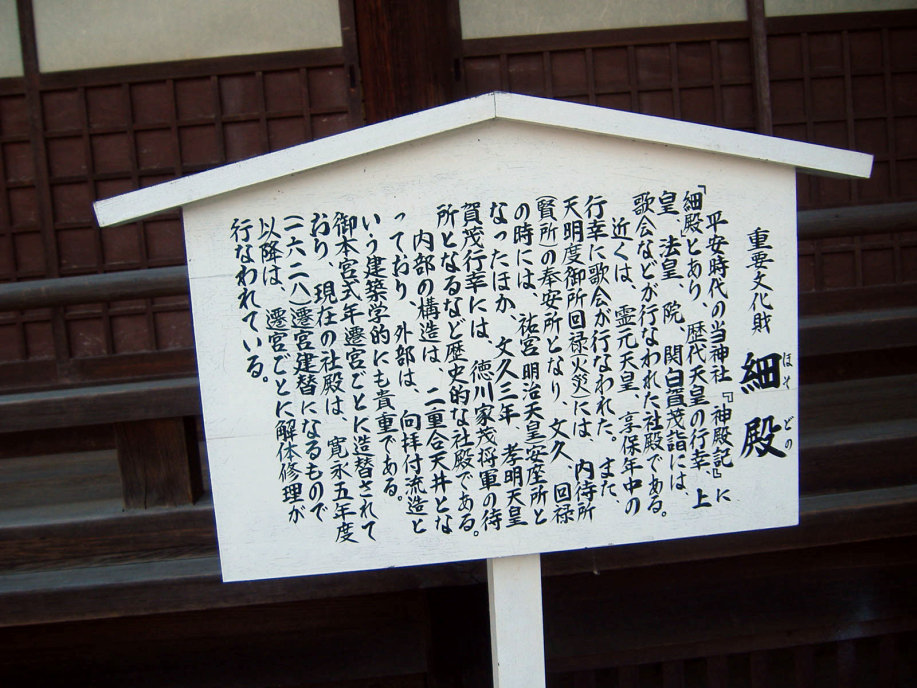 重要文化財 細殿
ほそ どの
平安時代の当神社『神殿記』に
『細殿』とあり、歴代天皇の行幸、上
皇、法皇、院、関白賀茂詣には、
歌会などが行なわれた社殿である。
近くは、霊元天皇、享保年中の
行幸に歌会が行なわれた。また、
天明度御所回禄(火災)には、内侍所
(賢所)の奉安所となり、文久、回禄
の時には、祐宮(明治天皇)安座所と
なったほか、文久三年、孝明天皇
賀茂行幸には、徳川家茂将軍の待
所となるなど歴史的な社殿である。
内部の構造は、二重合天井とな
っており、外部は、向拝付流造と
いう建築学的にも貴重である。
御本宮式年遷宮ごとに造替されて
おり、現在の社殿は、寛永五年度
(一六二八)遷宮建替になるもので
以降は、遷宮ごとに解体修理が
行なわれている。